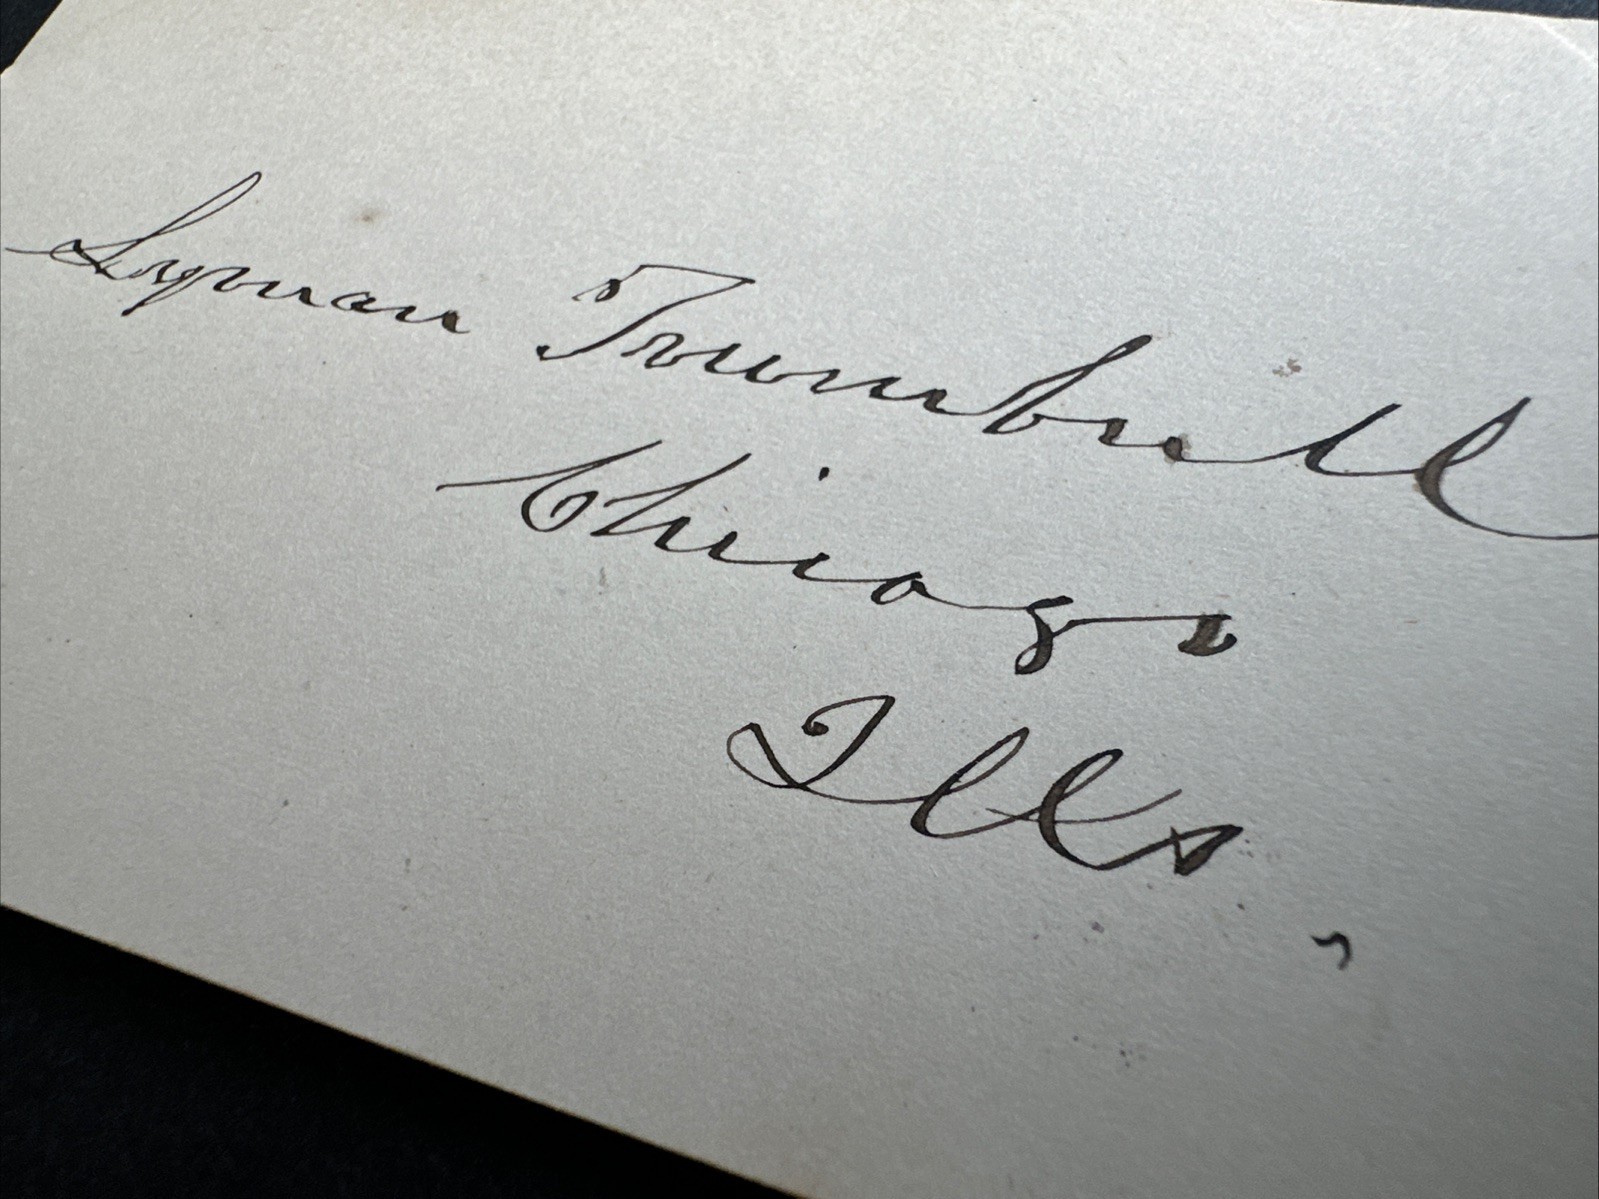 Lyman Trumbull
Chicago
Ills,